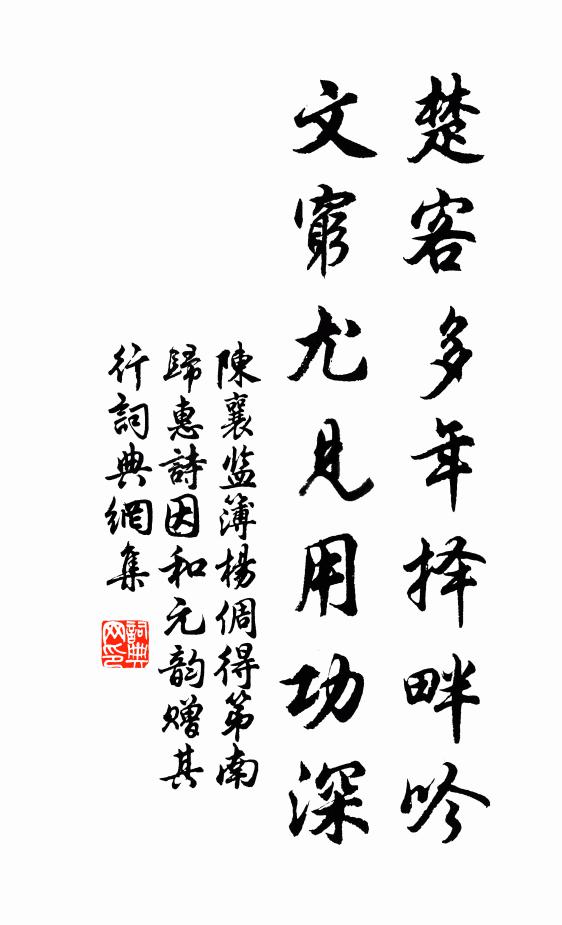 楚客多年择畔吟
文窮尤見用功深
陳襄监簿楊倜得第南
歸惠詩因和元韵赠其
行詞典網集
詞典网印